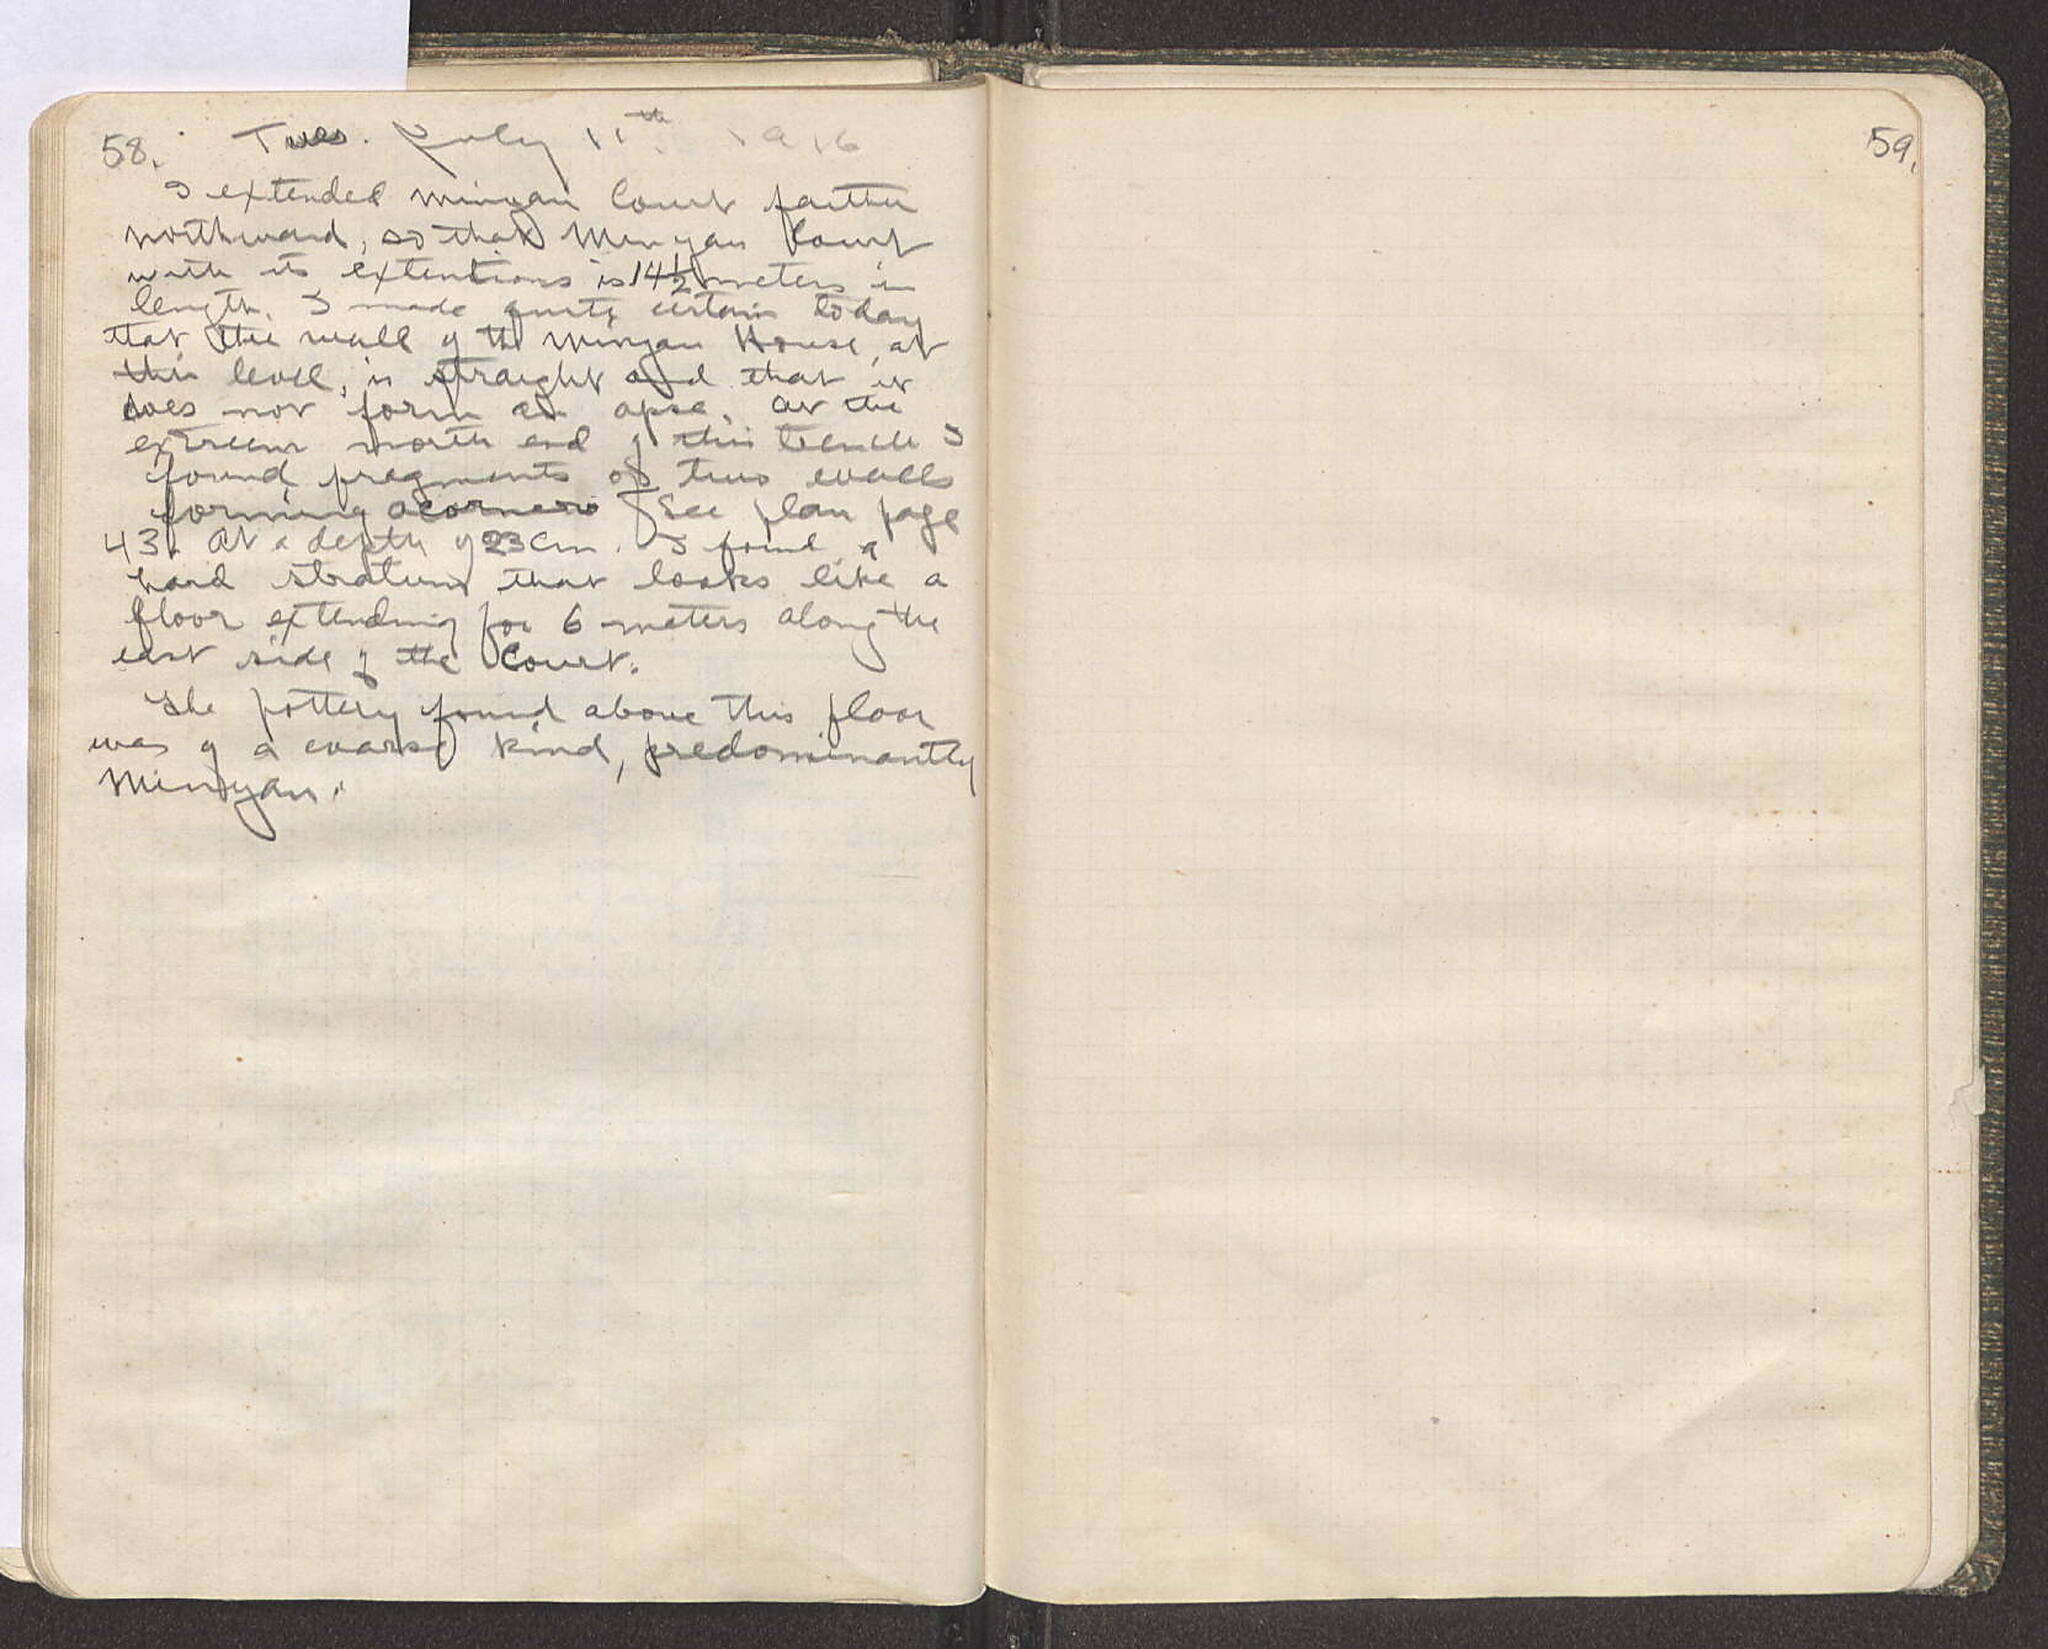 58. Tues. July 11th. 1916
I extended Minyan Court farther
northward, so that Minyan Court
with its extentions is 14 1/2 meters in
length. I made quite certain today
that the wall of the Minyan House, at
this level, is straight and that it
does not form an apse. At the
extreem north end of this trench I
found fragments of two walls
forming a corner. See plan page
43. At a depth of 23 cm. I found a
hard stratum that looks like a
floor extending for 6 meters along the
east side of the Court.
The pottery found above this floor
was of a coarse kind, predominantly
Minyan.
59.